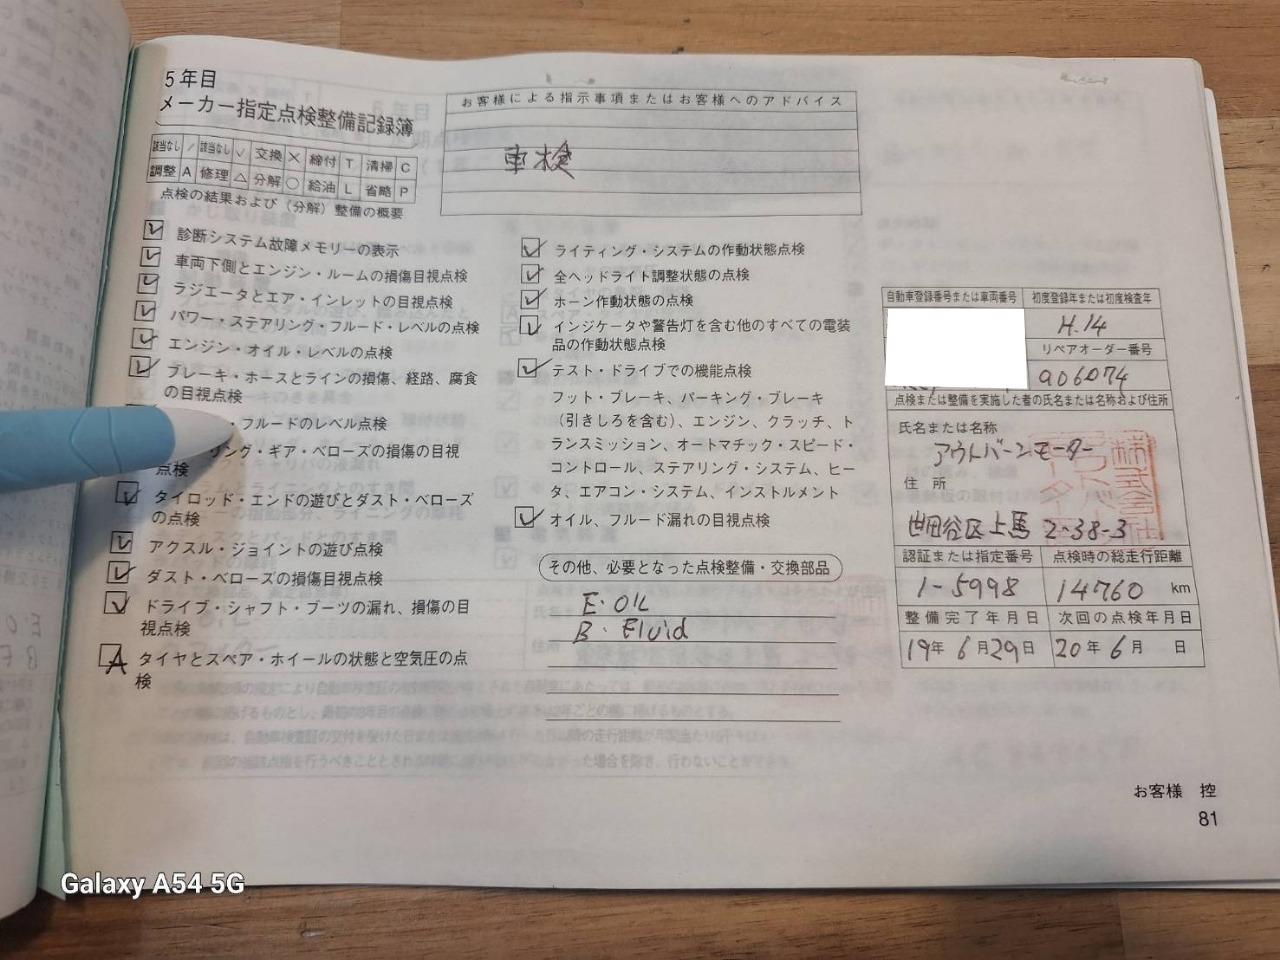 5年目
メーカー指定点検整備記録簿
該当なし / 該当なし レ 交換 × 締付 T 清掃 C
調整 A 修理 △ 分解 ○ 給油 L 省略 P
点検の結果および（分解）整備の概要
お客様による指示事項またはお客様へのアドバイス
車検
診断システム故障メモリーの表示
車両下側とエンジン・ルームの損傷目視点検
ラジエータとエア・インレットの目視点検
パワー・ステアリング・フルード・レベルの点検
エンジン・オイル・レベルの点検
ブレーキ・ホースとラインの損傷、経路、腐食
の目視点検
・フルードのレベル点検
リング・ギア・ベローズの損傷の目視
点検
タイロッド・エンドの遊びとダスト・ベローズ
の点検
アクスル・ジョイントの遊び点検
ダスト・ベローズの損傷目視点検
ドライブ・シャフト・ブーツの漏れ、損傷の目
視点検
A タイヤとスペア・ホイールの状態と空気圧の点
検
ライティング・システムの作動状態点検
全ヘッドライト調整状態の点検
ホーン作動状態の点検
インジケータや警告灯を含む他のすべての電装
品の作動状態点検
テスト・ドライブでの機能点検
フット・ブレーキ、パーキング・ブレーキ
（引きしろを含む）、エンジン、クラッチ、ト
ランスミッション、オートマチック・スピード・
コントロール、ステアリング・システム、ヒー
タ、エアコン・システム、インストルメント
オイル、フルード漏れの目視点検
その他、必要となった点検整備・交換部品
E・OIL
B・Fluid
自動車登録番号または車両番号 初度登録年または初度検査年
H.14
リペアオーダー番号
906074
点検または整備を実施した者の氏名または名称および住所
氏名または名称
アウトバーンモーター
住 所
世田谷区上馬 2-38-3
認証または指定番号 点検時の総走行距離
1-5998 14760 km
整備完了年月日 次回の点検年月日
19年 6月29日 20年 6月 日
お客様 控
81
Galaxy A54 5G